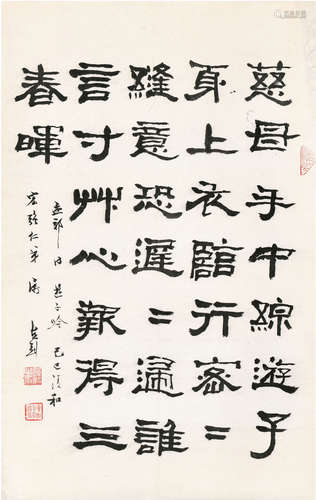 慈母手中線遊子
身上衣臨行密〻
縫意恐遲〻歸誰
言寸艸心報得三
春暉
孟郊 遊子吟 己巳清和
仁弟